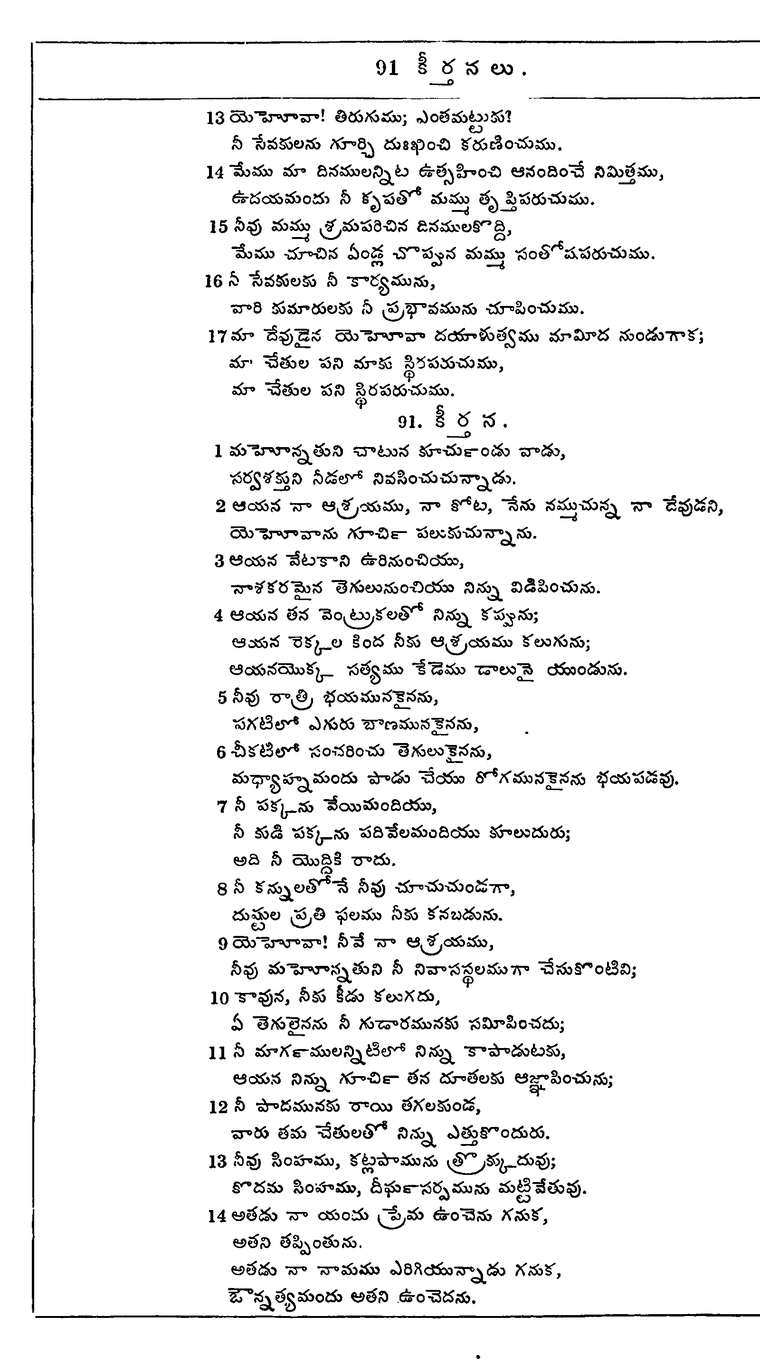 91 కీర్తనలు.
13 యెహోవా! తిరుగుము; ఎంతమట్టుకు?
నీ సేవకులను గూర్చి దుఃఖించి కరుణించుము.
14 మేము మా దినములన్నిట ఉత్సహించి ఆనందించే నిమిత్తము,
ఉదయమందు నీ కృపతో మమ్ము తృప్తిపరుచుము.
15 నీవు మమ్ము శ్రమపరిచిన దినములకొద్ది,
మేము చూచిన ఏండ్ల చొప్పున మమ్ము సంతోషపరుచుము.
16 నీ సేవకులకు నీ కార్యమును,
వారి కుమారులకు నీ ప్రభావమును చూపించుము.
17 మా దేవుడైన యెహోవా దయాళుత్వము మామీద నుండుగాక;
మా చేతుల పని మాకు స్థిరపరుచుము,
మా చేతుల పని స్థిరపరుచుము.
91. కీర్తన.
1 మహోన్నతుని చాటున కూచుండు వాడు,
సర్వశక్తుని నీడలో నివసించుచున్నాడు.
2 ఆయన నా ఆశ్రయము, నా కోట, నేను నమ్ముచున్న నా దేవుడని,
యెహోవాను గూచిఁ పలుకుచున్నాను.
3 ఆయన వేటకాని ఉరినుంచియు,
నాశకరమైన తెగులునుంచియు నిన్ను విడిపించును.
4 ఆయన తన వెంట్రుకలతో నిన్ను కప్పును;
ఆయన రెక్కల కింద నీకు ఆశ్రయము కలుగును;
ఆయనయొక్క సత్యము కేడెము డాలునై యుండును.
5 నీవు రాత్రి భయమునకైనను,
పగటిలో ఎగురు బాణమునకైనను,
6 చీకటిలో సంచరించు తెగులుకైనను,
మధ్యాహ్నమందు పాడు చేయు రోగమునకైనను భయపడవు.
7 నీ పక్కను వేయిమందియు,
నీ కుడి పక్కను పదివేలమందియు కూలుదురు;
అది నీ యొద్దికి రాదు.
8 నీ కన్నులతోనే నీవు చూచుచుండగా,
దుష్టుల ప్రతి ఫలము నీకు కనబడును.
9 యెహోవా! నీవే నా ఆశ్రయము,
నీవు మహోన్నతుని నీ నివాసస్థలముగా చేసుకొంటివి;
10 కావున, నీకు కీడు కలుగదు,
ఏ తెగులైనను నీ గుడారమునకు సమీపించదు;
11 నీ మాగఁములన్నిటిలో నిన్ను కాపాడుటకు,
ఆయన నిన్ను గూచిఁ తన దూతలకు ఆజ్ఞాపించును;
12 నీ పాదమునకు రాయి తగలకుండ,
వారు తమ చేతులతో నిన్ను ఎత్తుకొందురు.
13 నీవు సింహము, కట్లపామును త్రొక్కుదువు;
కొదమ సింహము, దీఘఁసర్పమును మట్టివేతువు.
14 అతడు నా యందు ప్రేమ ఉంచెను గనుక,
అతని తప్పింతును.
అతడు నా నామము ఎరిగియున్నాడు గనుక,
ఔన్నత్యమందు అతని ఉంచెదను.